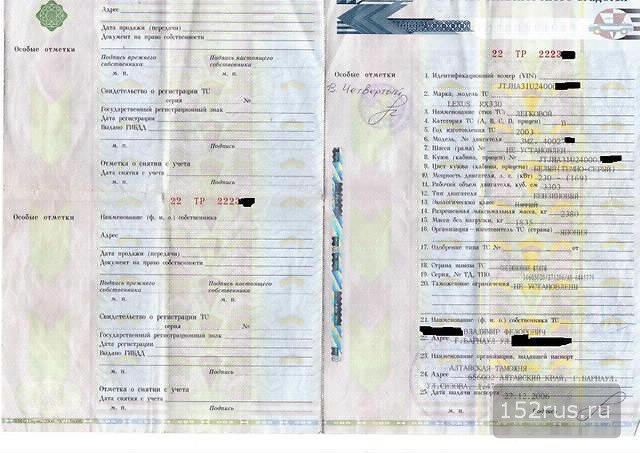 Адрес
Дата продажи (передачи)
Документ на право собственности
Особые отметки
Подпись прежнего собственника
Подпись настоящего собственника
М. П.
М. П.
Свидетельство о регистрации ТС
серия №
Государственный регистрационный знак
Дата регистрации
Выдано ГИБДД
М. П. Подпись
Отметка о снятии с учета
Дата снятия с учета
М. П. Подпись
22 ТР 2223
Особые отметки
Наименование (ф. и. о.) собственника
Адрес
Дата продажи (передачи)
Документ на право собственности
Подпись прежнего собственника
Подпись настоящего собственника
М. П.
М. П.
Свидетельство о регистрации ТС
серия №
Государственный регистрационный знак
Дата регистрации
Выдано ГИБДД
М. П. Подпись
Отметка о снятии с учета
Дата снятия с учета
М. П. Подпись
22 ТР 2223
Особые отметки
В. Четвертой
1. Идентификационный номер (VIN)
JTJHA31U24000
2. Марка, модель ТС
LEXUS RX330
3. Наименование (тип ТС) ЛЕГКОВОЙ
4. Категория ТС (А, В, С, D, прицеп) В
5. Год изготовления ТС 2003
6. Модель, № двигателя 3MZ, 4002
7. Шасси (рама) № НЕ УСТАНОВЛЕН
8. Кузов (кабина, прицеп) № JTJHA31U24000
9. Цвет кузова (кабины, прицепа) БЕЛЫЙ
10. Мощность двигателя, л. с. (кВт) 230 - (169)
11. Рабочий объем двигателя, куб. см 3303
12. Тип двигателя БЕНЗИНОВЫЙ
13. Экологический класс
14. Разрешенная максимальная масса, кг 2380
15. Масса без нагрузки, кг 1835
16. Организация - изготовитель ТС (страна) ЯПОНИЯ
17. Одобрение типа ТС № от
18. Страна вывоза ТС
19. Серия, № ТД, ТПО
20. Таможенные ограничения НЕ УСТАНОВЛЕНЫ
21. Наименование (ф. и. о.) собственника ТС
ВЛАДИМИР ФЕДОРОВИЧ
22. Адрес Г. БАРНАУЛ УЛ.
23. Наименование организации, выдавшей паспорт
АЛТАЙСКАЯ ТАМОЖНЯ
24. Адрес 656002 АЛТАЙСКИЙ КРАЙ, Г. БАРНАУЛ,
УЛ. СИЗОВА, Д. 47
25. Дата выдачи паспорта 27.12.2006
М. П.
152rus.ru